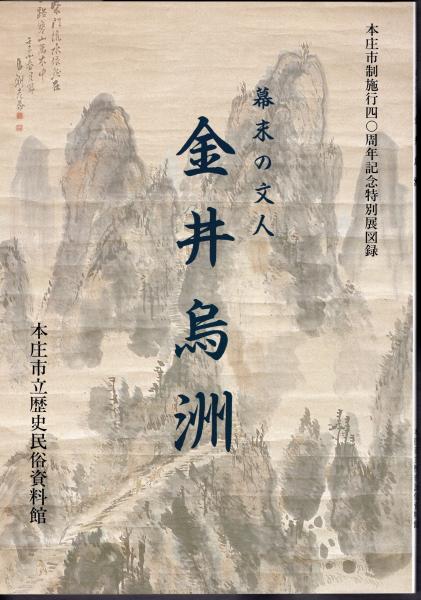 本庄市制施行四〇周年記念特別展図録
幕末の文人
金井烏洲
本庄市立歴史民俗資料館